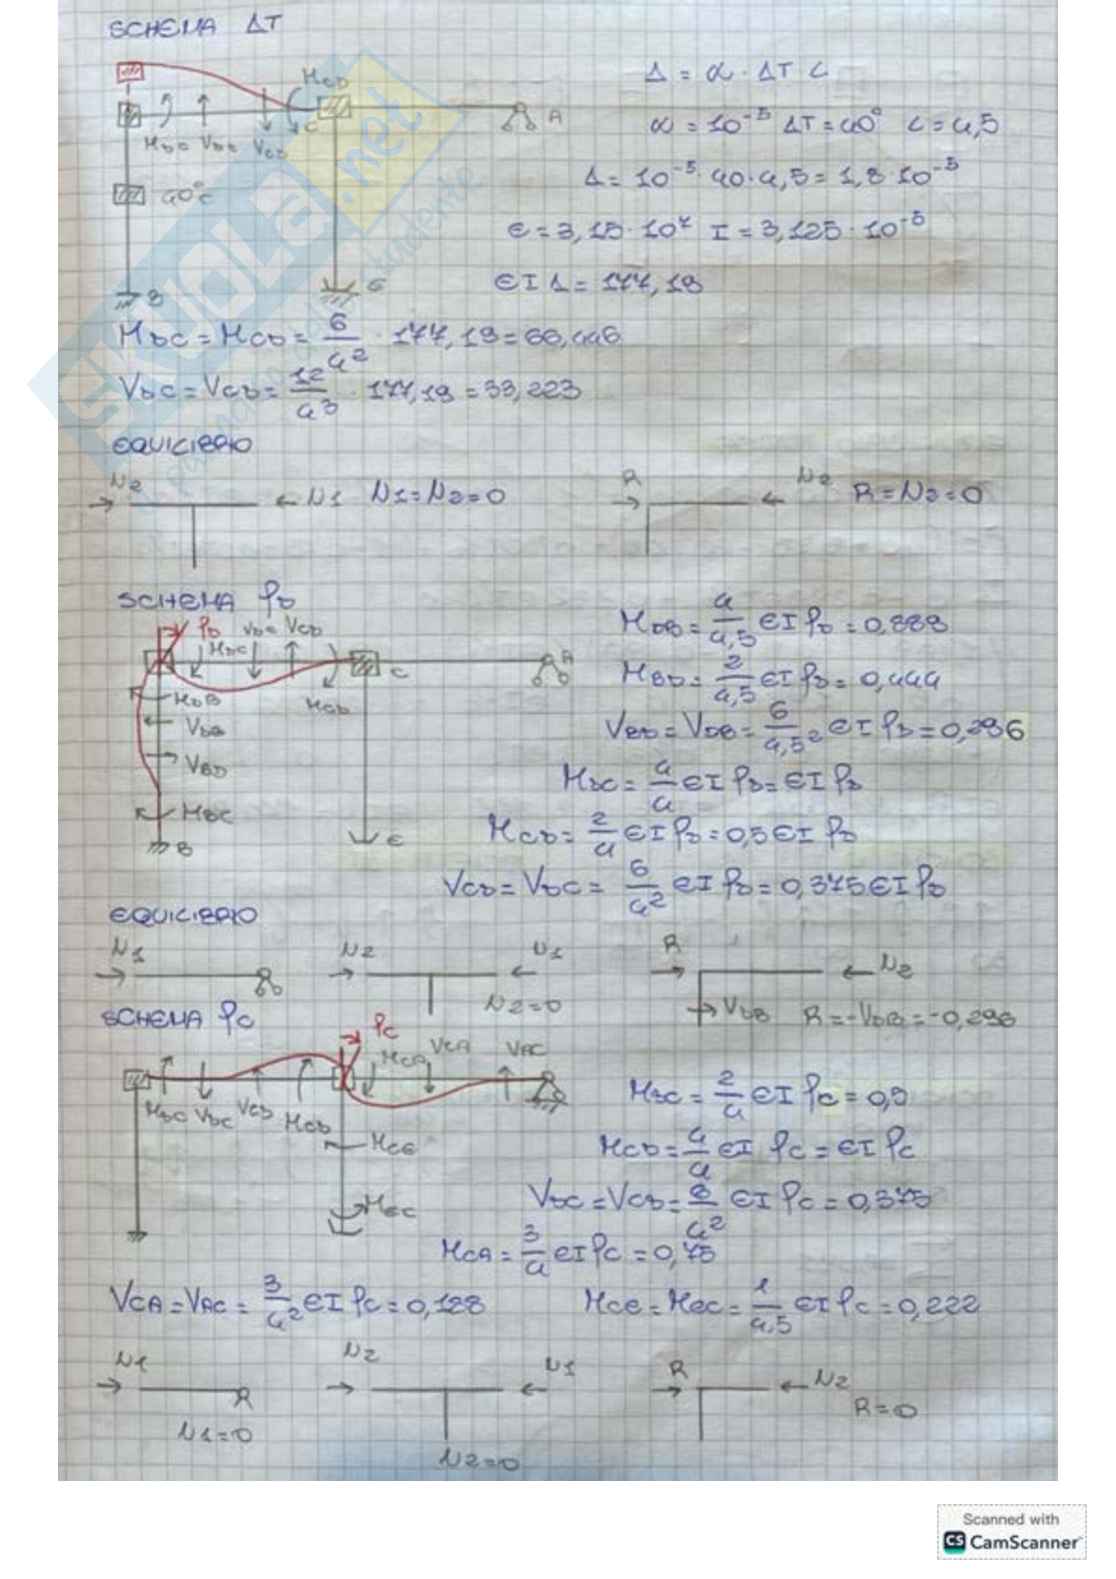 SCHEMA ΔT
Δ = α · ΔT L
α = 10⁻⁵ ΔT = 40° L = 4,5
Δ = 10⁻⁵ · 40 · 4,5 = 1,8 · 10⁻³
E = 3,15 · 10⁷ I = 3,125 · 10⁻⁵
EIΔ = 177,19
MCD
MDC VDC VCD C A
40°C
B E
MDC = MCD = 6/4² · 177,19 = 66,446
VDC = VCD = 12/4³ · 177,19 = 33,223
EQUILIBRIO
N2 N1 N1 = N2 = 0 R N2 R = N2 = 0
SCHEMA φD
φD VDC VCD
MDC C A
MDB MCD
VDB
VBD
B E
MDB = 4/4,5 EI φD = 0,888
MBD = 2/4,5 EI φD = 0,444
VBD = VDB = 6/4,5² EI φD = 0,296
MDC = 4/4 EI φD = EI φD
MCD = 2/4 EI φD = 0,5 EI φD
VCD = VDC = 6/4² EI φD = 0,375 EI φD
EQUILIBRIO
N1 N2 N1 R N2
N2 = 0 VDB R = -VDB = -0,296
SCHEMA φC
φC
MCA VCA VAC
MDC VDC VCD MCD
MCE
MEC
MDC = 2/4 EI φC = 0,5
MCD = 4/4 EI φC = EI φC
VDC = VCD = 6/4² EI φC = 0,375
MCA = 3/4 EI φC = 0,75
VCA = VAC = 3/4² EI φC = 0,188 MCE = MEC = 1/4,5 EI φC = 0,222
N1 N2 N1 R N2
N1 = 0 N2 = 0 R = 0
SKUOLA.net
Scanned with
CS CamScanner